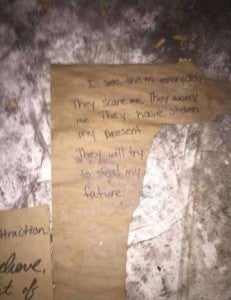 I see them everyday
They scare me. They worry
me. They have stolen
my present
They will try
to steal my
future.
ttraction
elieve.
t of